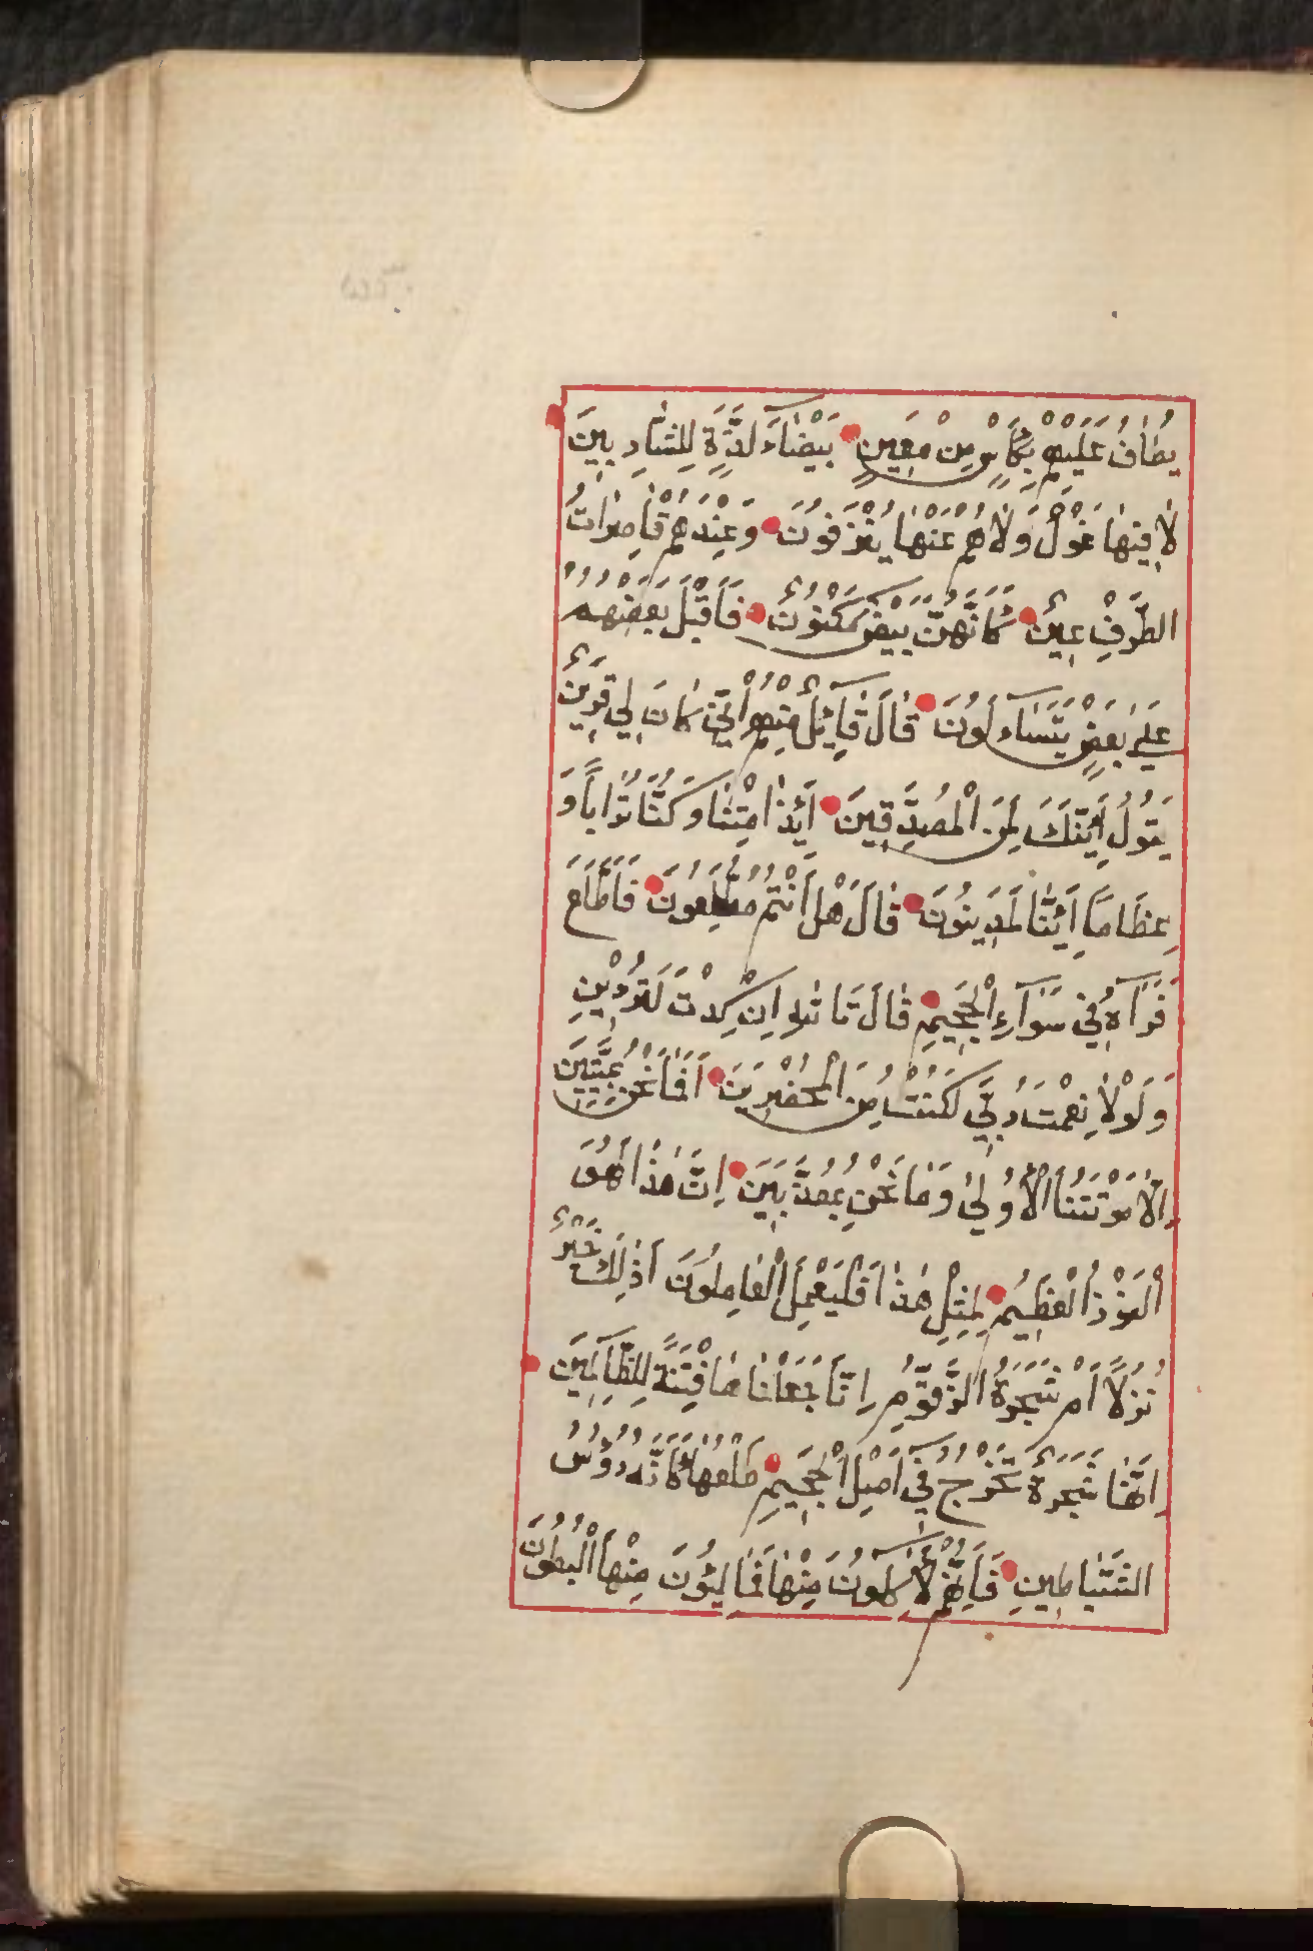 يُطَافُ عَلَيْهِمْ بِكَأْسٍ مِنْ مَعِينٍ بَيْضَاءَ لَذَّةٍ لِلشَّارِبِينَ
لَا فِيهَا غَوْلٌ وَلَا هُمْ عَنْهَا يُنْزَفُونَ وَعِنْدَهُمْ قَاصِرَاتُ
الطَّرْفِ عِينٌ كَأَنَّهُنَّ بَيْضٌ مَكْنُونٌ فَأَقْبَلَ بَعْضُهُمْ
عَلَى بَعْضٍ يَتَسَاءَلُونَ قَالَ قَائِلٌ مِنْهُمْ إِنِّي كَانَ لِي قَرِينٌ
يَقُولُ أَئِنَّكَ لَمِنَ الْمُصَدِّقِينَ أَئِذَا مِتْنَا وَكُنَّا تُرَابًا وَ
عِظَامًا أَئِنَّا لَمَدِينُونَ قَالَ هَلْ أَنْتُمْ مُطَّلِعُونَ فَاطَّلَعَ
فَرَآهُ فِي سَوَاءِ الْجَحِيمِ قَالَ تَاللهِ إِنْ كِدْتَ لَتُرْدِينِ
وَلَوْلَا نِعْمَتُ رَبِّي لَكُنْتُ مِنَ الْمُحْضَرِينَ أَفَمَا نَحْنُ بِمَيِّتِينَ
إِلَّا مَوْتَتَنَا الْأُولَى وَمَا نَحْنُ بِمُعَذَّبِينَ إِنَّ هَذَا لَهُوَ
الْفَوْزُ الْعَظِيمُ لِمِثْلِ هَذَا فَلْيَعْمَلِ الْعَامِلُونَ أَذَلِكَ خَيْرٌ
نُزُلًا أَمْ شَجَرَةُ الزَّقُّومِ إِنَّا جَعَلْنَاهَا فِتْنَةً لِلظَّالِمِينَ
إِنَّهَا شَجَرَةٌ تَخْرُجُ فِي أَصْلِ الْجَحِيمِ طَلْعُهَا كَأَنَّهُ رُؤُسُ
الشَّيَاطِينِ فَإِنَّهُمْ لَآكِلُونَ مِنْهَا فَمَالِئُونَ مِنْهَا الْبُطُونَ